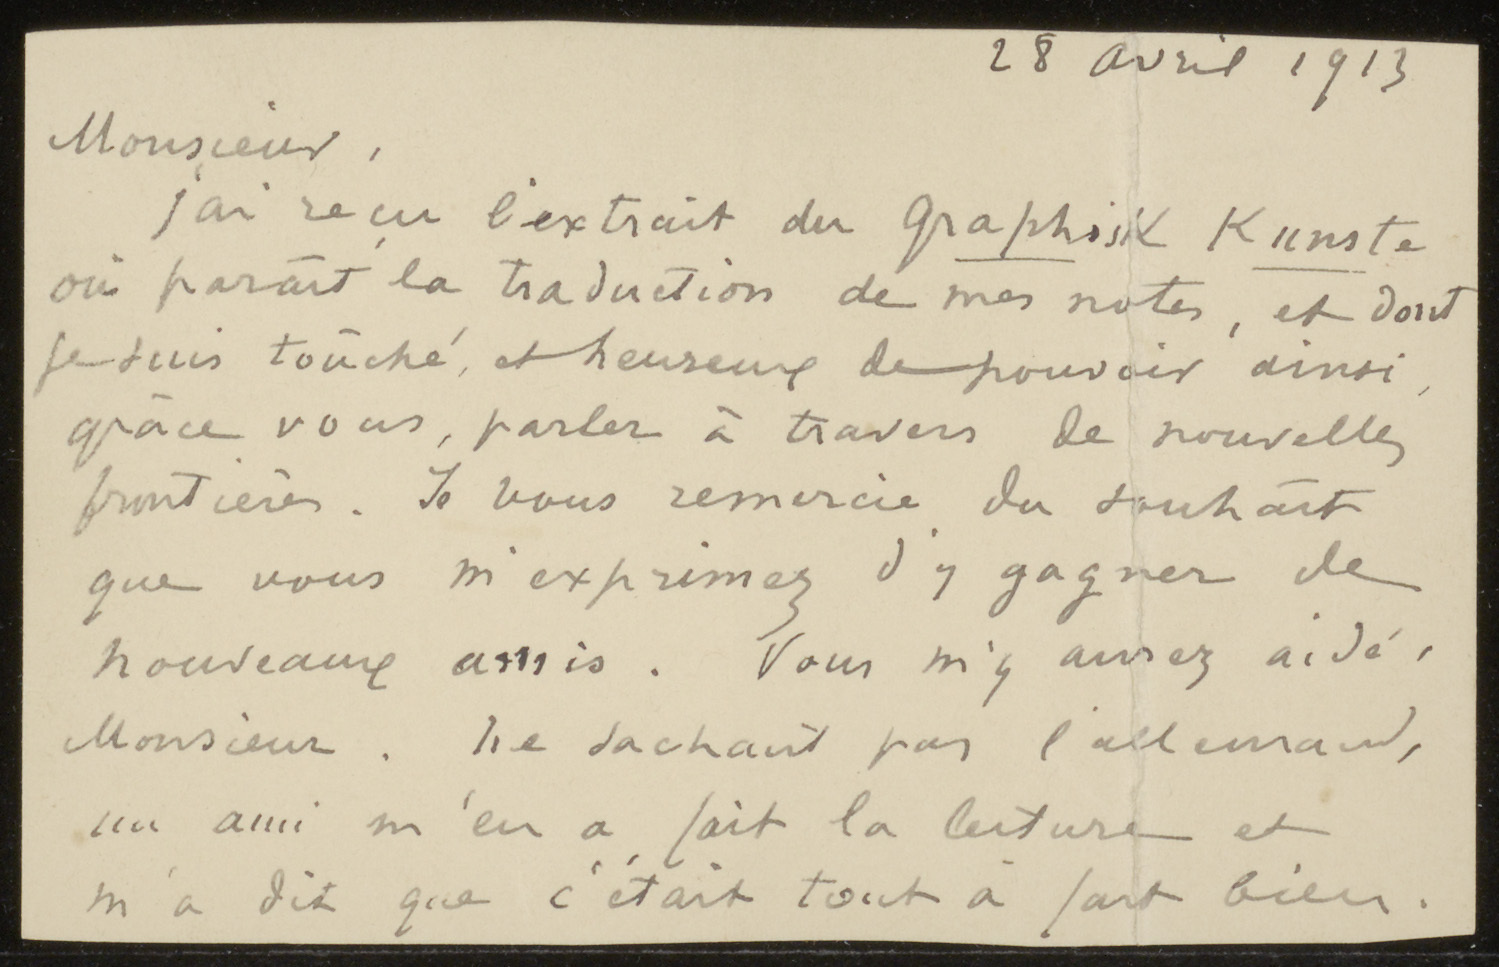 28 avril 1913
Monsieur,
j'ai reçu l'extrait du Graphisk Kunste
où paraît la traduction de mes notes, et dont
je suis touché, et heureux de pouvoir ainsi,
grâce vous, parler à travers de nouvelles
frontières. Je vous remercie du souhait
que vous m'exprimez d'y gagner de
nouveaux amis. Vous m'y aurez aidé,
Monsieur. Ne sachant pas l'allemand,
un ami m'en a fait la lecture et
m'a dit que c'était tout à fait bien.